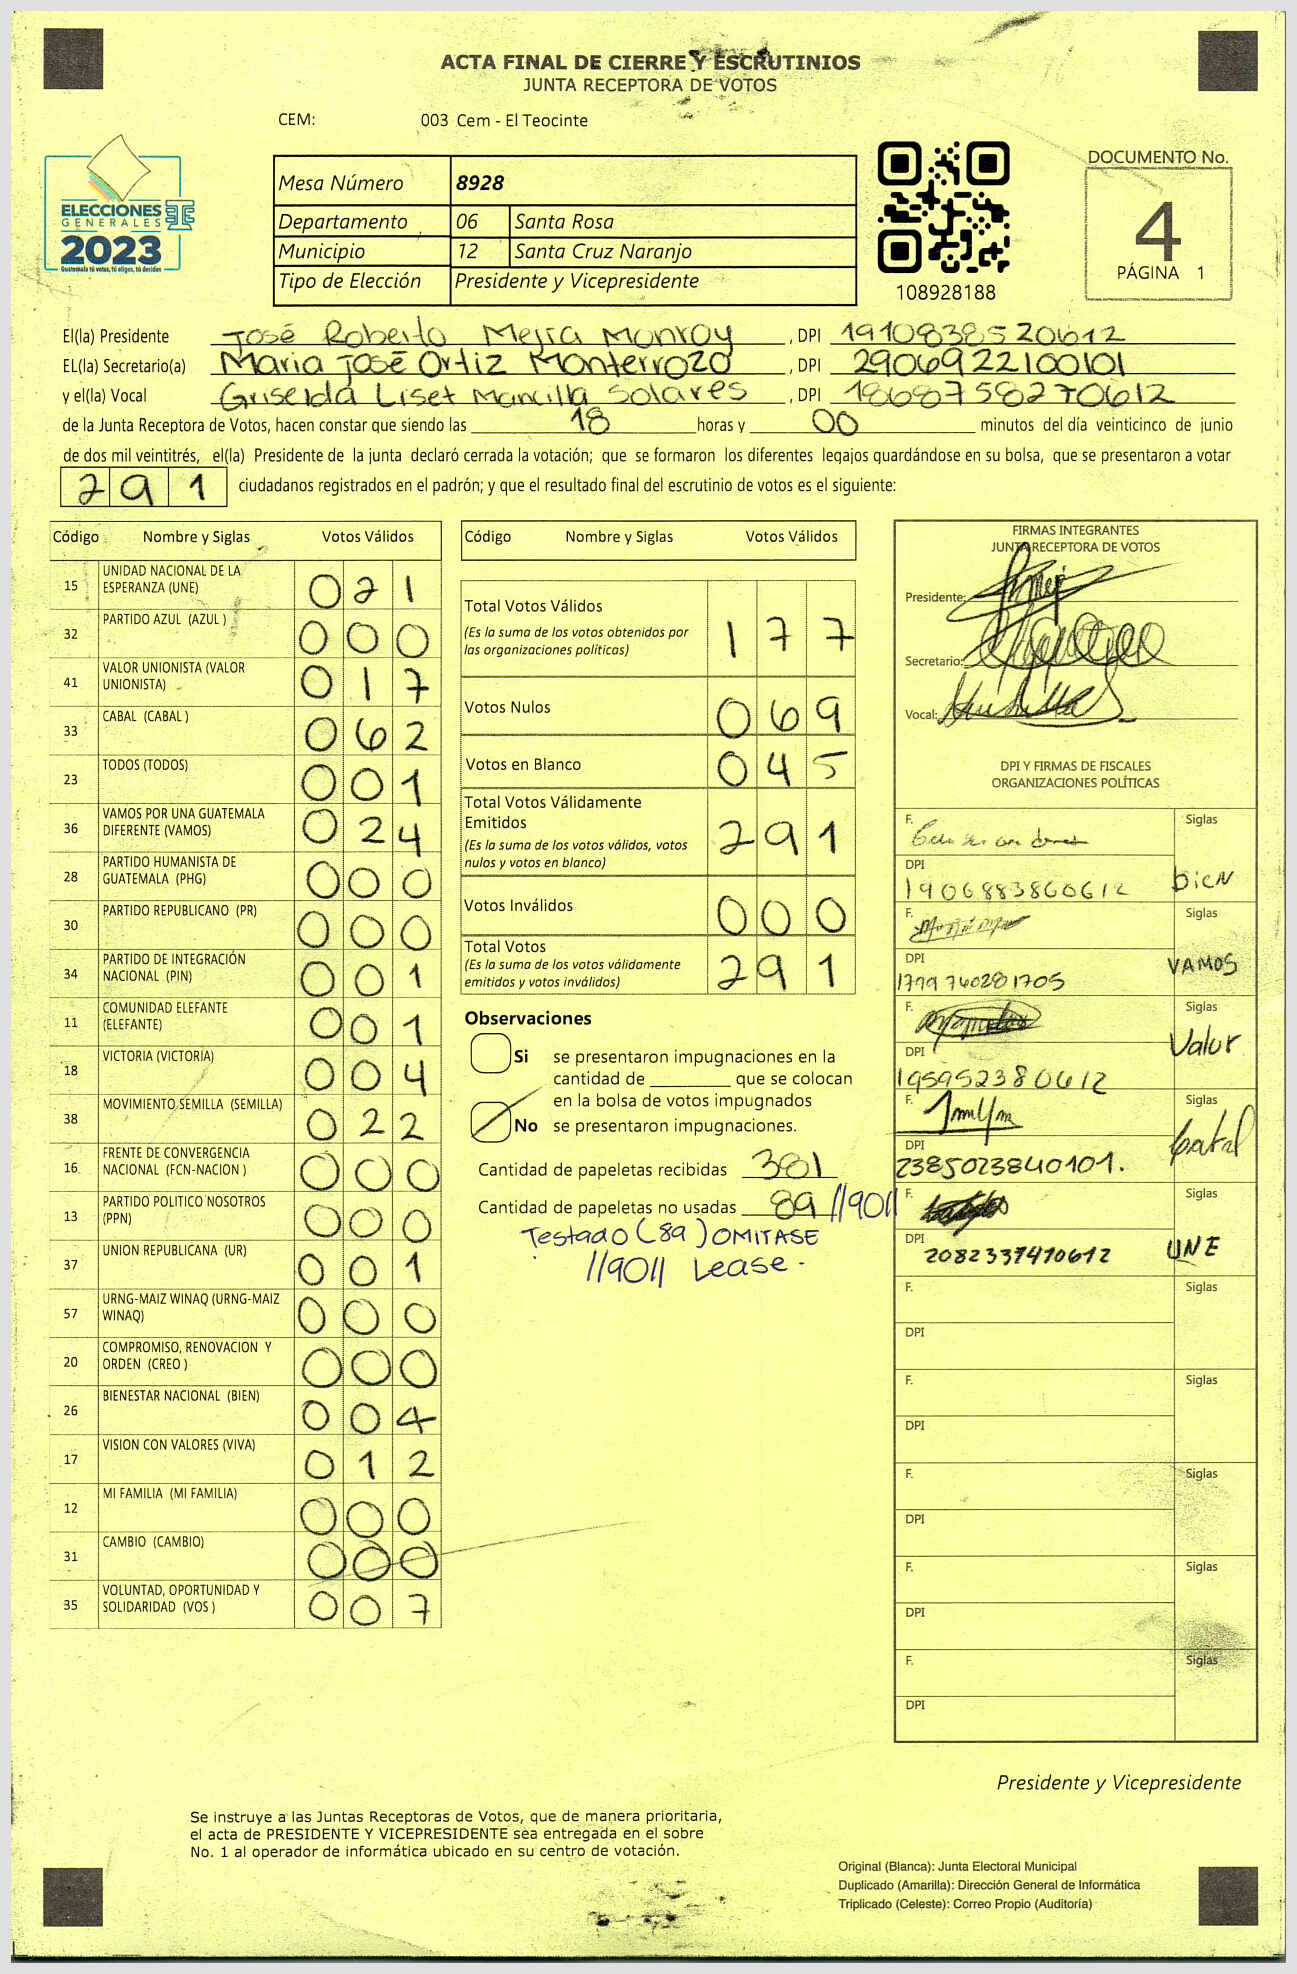 ACTA FINAL DE CIERRE Y ESCRUTINIOS
JUNTA RECEPTORA DE VOTOS
CEM: 003 Cem - El Teocinte
ELECCIONES
GENERALES
2023
Guatemala tú votas, tú eliges, tú decides
Mesa Número 8928
Departamento 06 Santa Rosa
Municipio 12 Santa Cruz Naranjo
Tipo de Elección Presidente y Vicepresidente
108928188
DOCUMENTO No.
4
PÁGINA 1
El(la) Presidente José Roberto Mejia Monroy, DPI 1910838520612
EL(la) Secretario(a) Maria José Ortiz Monterrozo, DPI 2906922100101
y el(la) Vocal Griselda Liset Mancilla Solares, DPI 1868758270612
de la Junta Receptora de Votos, hacen constar que siendo las 18 horas y 00 minutos del día veinticinco de junio
de dos mil veintitrés, el(la) Presidente de la junta declaró cerrada la votación; que se formaron los diferentes legajos guardándose en su bolsa, que se presentaron a votar
291 ciudadanos registrados en el padrón; y que el resultado final del escrutinio de votos es el siguiente:
Código Nombre y Siglas Votos Válidos
15 UNIDAD NACIONAL DE LA ESPERANZA (UNE) 021
32 PARTIDO AZUL (AZUL ) 000
41 VALOR UNIONISTA (VALOR UNIONISTA) 017
33 CABAL (CABAL ) 062
23 TODOS (TODOS) 001
36 VAMOS POR UNA GUATEMALA DIFERENTE (VAMOS) 024
28 PARTIDO HUMANISTA DE GUATEMALA (PHG) 000
30 PARTIDO REPUBLICANO (PR) 000
34 PARTIDO DE INTEGRACIÓN NACIONAL (PIN) 001
11 COMUNIDAD ELEFANTE (ELEFANTE) 001
18 VICTORIA (VICTORIA) 004
38 MOVIMIENTO SEMILLA (SEMILLA) 022
16 FRENTE DE CONVERGENCIA NACIONAL (FCN-NACION ) 000
13 PARTIDO POLITICO NOSOTROS (PPN) 000
37 UNION REPUBLICANA (UR) 001
57 URNG-MAIZ WINAQ (URNG-MAIZ WINAQ) 000
20 COMPROMISO, RENOVACION Y ORDEN (CREO ) 000
26 BIENESTAR NACIONAL (BIEN) 004
17 VISION CON VALORES (VIVA) 012
12 MI FAMILIA (MI FAMILIA) 000
31 CAMBIO (CAMBIO) 000
35 VOLUNTAD, OPORTUNIDAD Y SOLIDARIDAD (VOS ) 007
Código Nombre y Siglas Votos Válidos
Total Votos Válidos 177
(Es la suma de los votos obtenidos por
las organizaciones políticas)
Votos Nulos 069
Votos en Blanco 045
Total Votos Válidamente
Emitidos 291
(Es la suma de los votos válidos, votos
nulos y votos en blanco)
Votos Inválidos 000
Total Votos 291
(Es la suma de los votos válidamente
emitidos y votos inválidos)
Observaciones
Si se presentaron impugnaciones en la
cantidad de ________ que se colocan
en la bolsa de votos impugnados
No se presentaron impugnaciones.
Cantidad de papeletas recibidas 381
Cantidad de papeletas no usadas 89 //90//
Testado (89) OMITASE
//90// Lease.
FIRMAS INTEGRANTES
JUNTA RECEPTORA DE VOTOS
Presidente:
Secretario:
Vocal:
DPI Y FIRMAS DE FISCALES
ORGANIZACIONES POLÍTICAS
F. Siglas
DPI 1906883860612 bien
F. Siglas
DPI 1799760281705 VAMOS
F. Siglas
DPI 195952380612 Valor
F. Siglas
DPI 2385023840101.
F. Siglas
DPI 2082337410612 UNE
F. Siglas
DPI
F. Siglas
DPI
F. Siglas
DPI
F. Siglas
DPI
F. Siglas
DPI
Presidente y Vicepresidente
Se instruye a las Juntas Receptoras de Votos, que de manera prioritaria,
el acta de PRESIDENTE Y VICEPRESIDENTE sea entregada en el sobre
No. 1 al operador de informática ubicado en su centro de votación.
Original (Blanca): Junta Electoral Municipal
Duplicado (Amarilla): Dirección General de Informática
Triplicado (Celeste): Correo Propio (Auditoría)